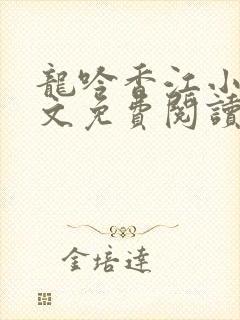 龍吟香江小
文免費閱讀
金培達